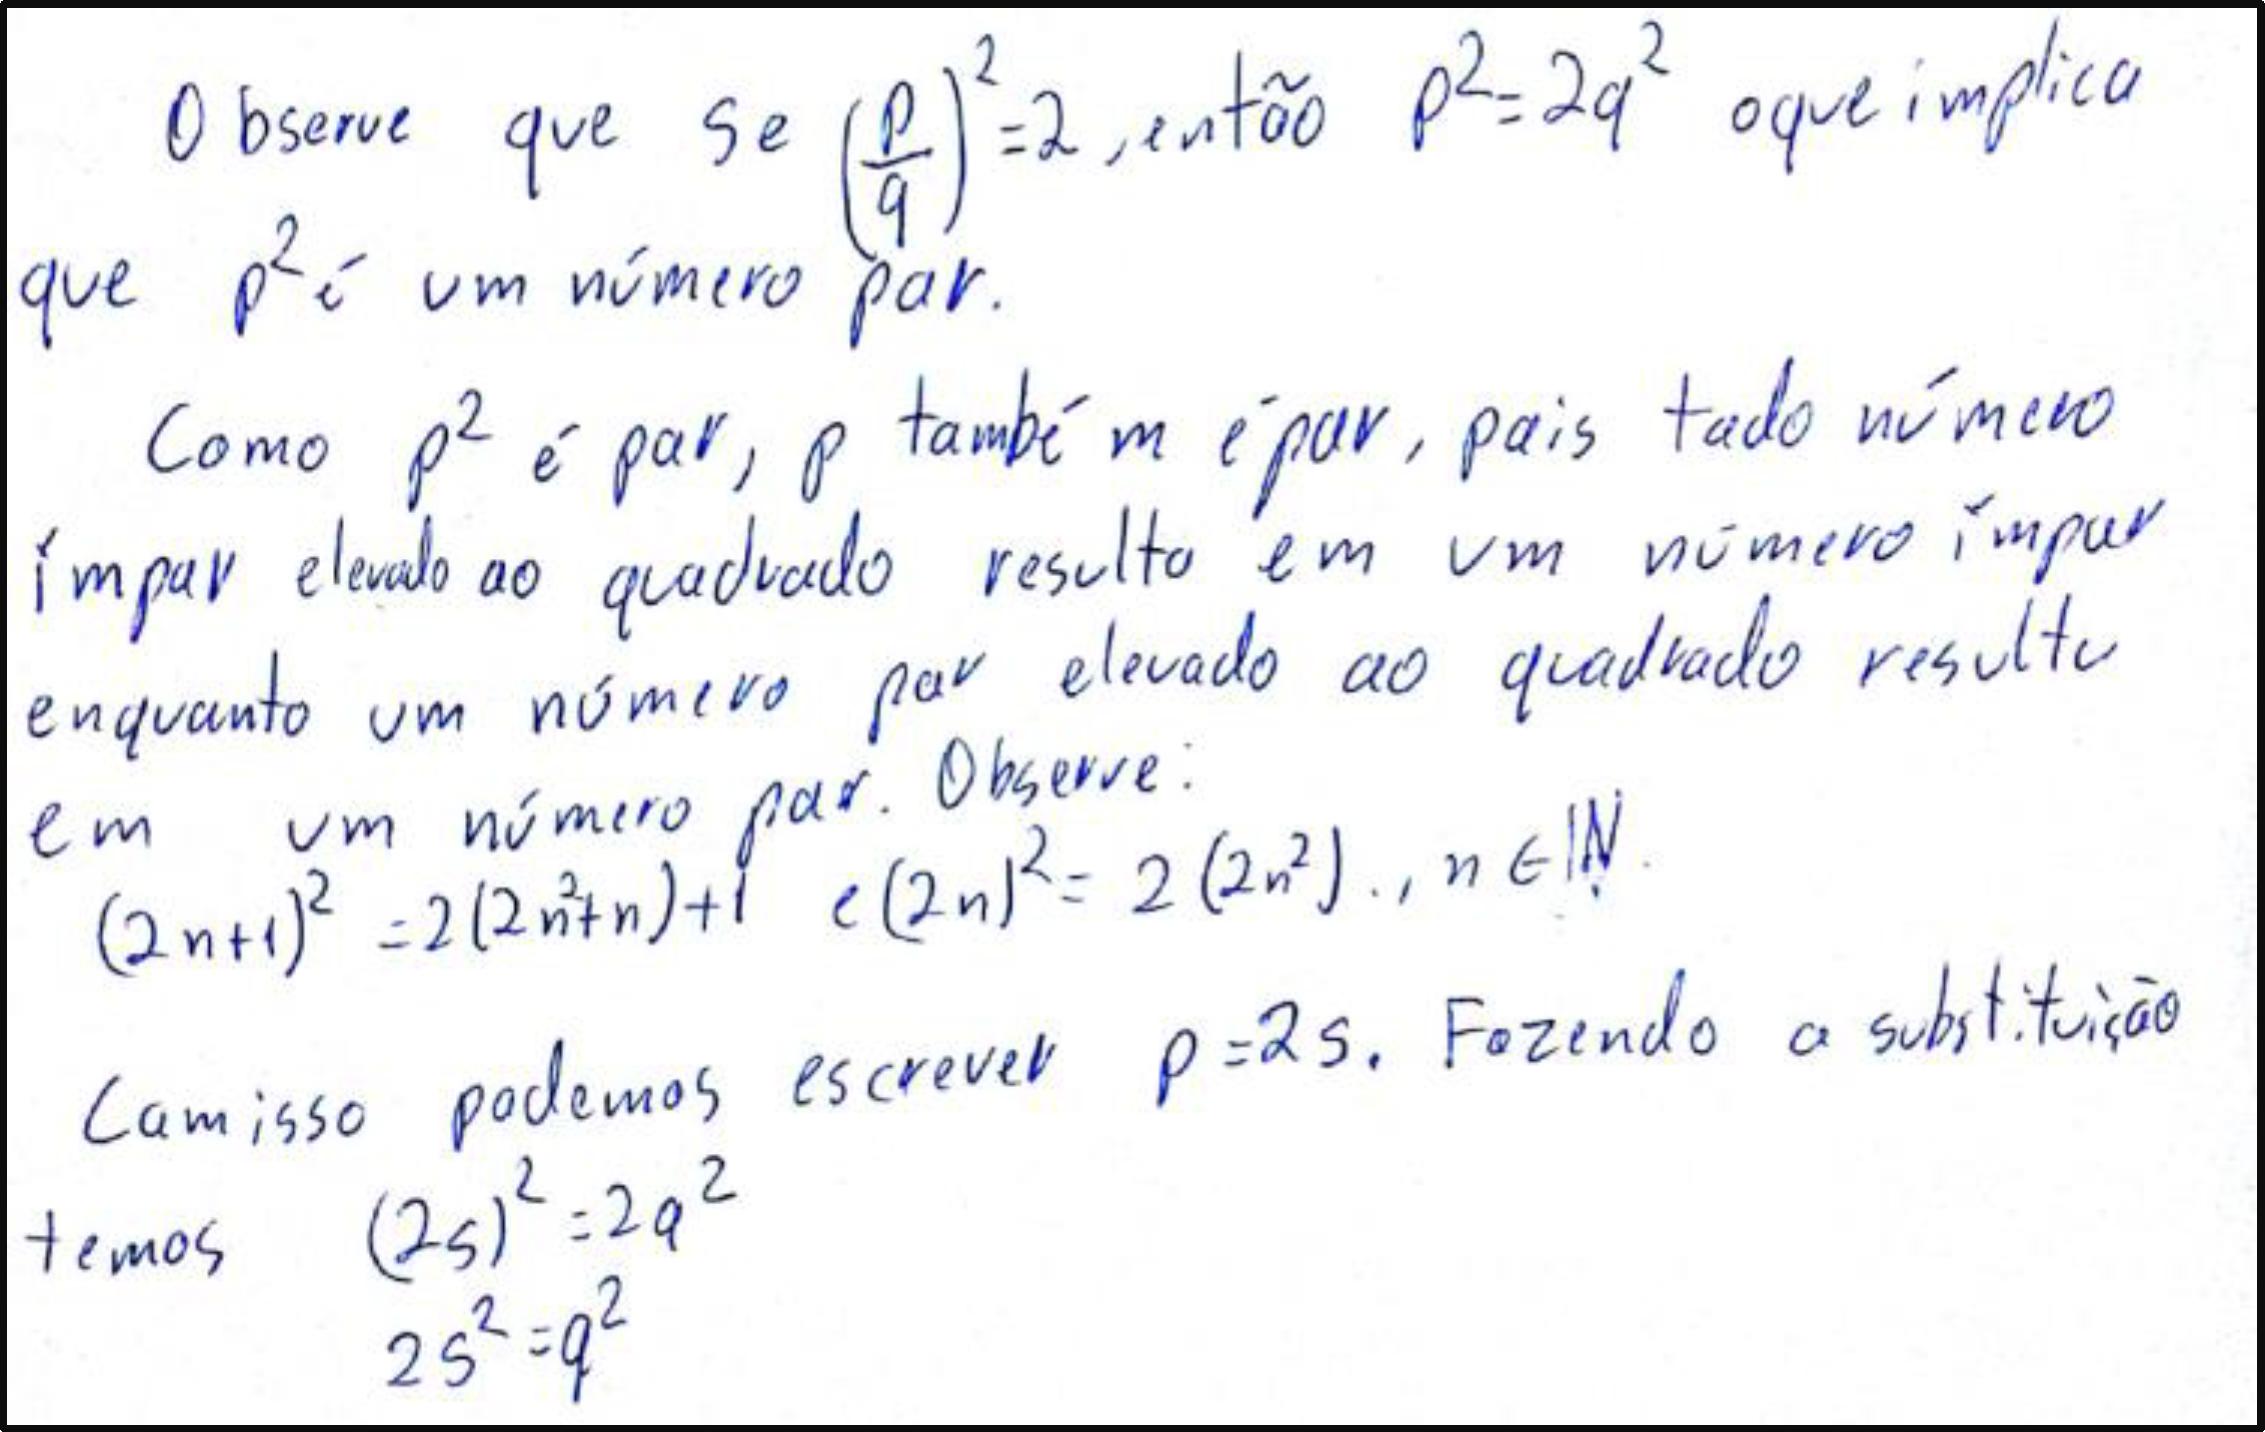 Observe que se (p/q)²=2, então p²=2q² o que implica
que p² é um número par.
Como p² é par, p também é par, pois todo número
ímpar elevado ao quadrado resulta em um número ímpar
enquanto um número par elevado ao quadrado resulta
em um número par. Observe:
(2n+1)² =2(2n²+n)+1 e (2n)²= 2(2n²)., n ∈ ℕ.
Com isso podemos escrever p=2s. Fazendo a substituição
temos (2s)²=2q²
2s²=q²